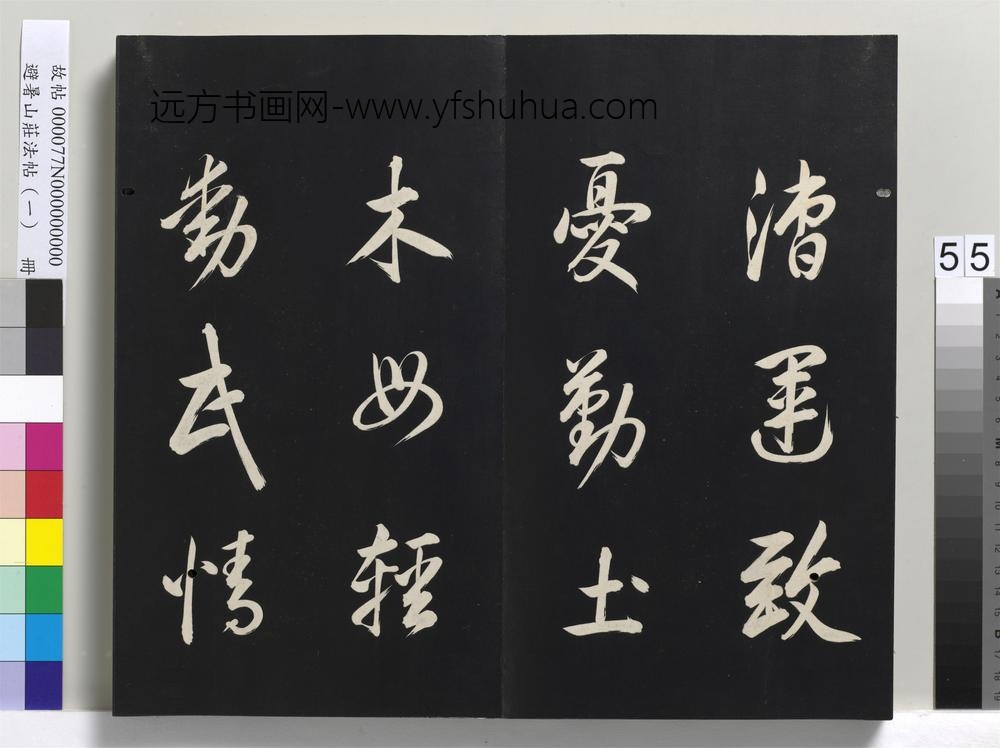 远方书画网-www.yfshuhua.com
漕運致
憂勤土
木毋輕
動民情
故帖 000077N000000000
避暑山莊法帖(一) 冊
55